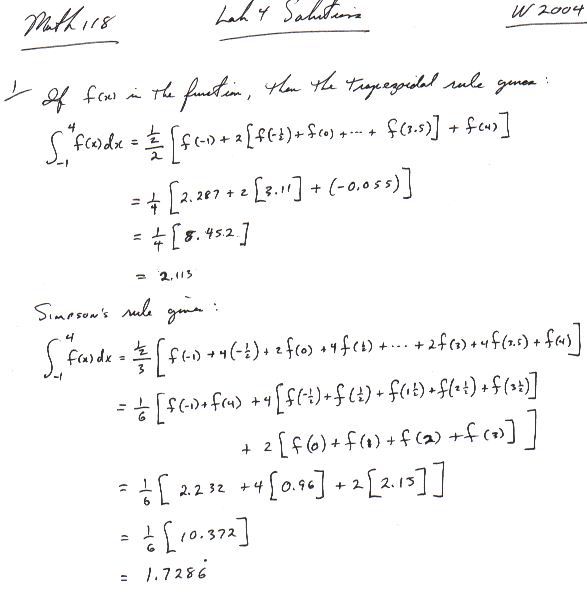 Math 118 Lab 4 Solutions W 2004
1 If f(x) is the function, then the trapezoidal rule gives :
∫_{-1}^{4} f(x)dx = \frac{1/2}{2} [ f(-1) + 2[ f(-1/2) + f(0) + ... + f(3.5)] + f(4) ]
= 1/4 [ 2.287 + 2 [3.11] + (-0.055) ]
= 1/4 [ 8.452 ]
= 2.113
Simpson's rule gives :
∫_{-1}^{4} f(x)dx = \frac{1/2}{3} [ f(-1) + 4(-1/2) + 2f(0) + 4f(1/2) + ... + 2f(3) + 4f(3.5) + f(4) ]
= 1/6 [ f(-1) + f(4) + 4[ f(-1/2) + f(1/2) + f(1 1/2) + f(2 1/2) + f(3 1/2) ]
+ 2[ f(0) + f(1) + f(2) + f(3) ] ]
= 1/6 [ 2.232 + 4[0.96] + 2[2.15] ]
= 1/6 [ 10.372 ]
= 1.7286̇